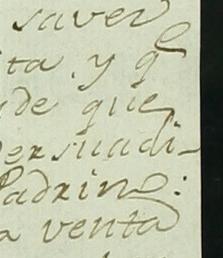 saver
ta y q
de que
persuadi-
Padrino:
a venta